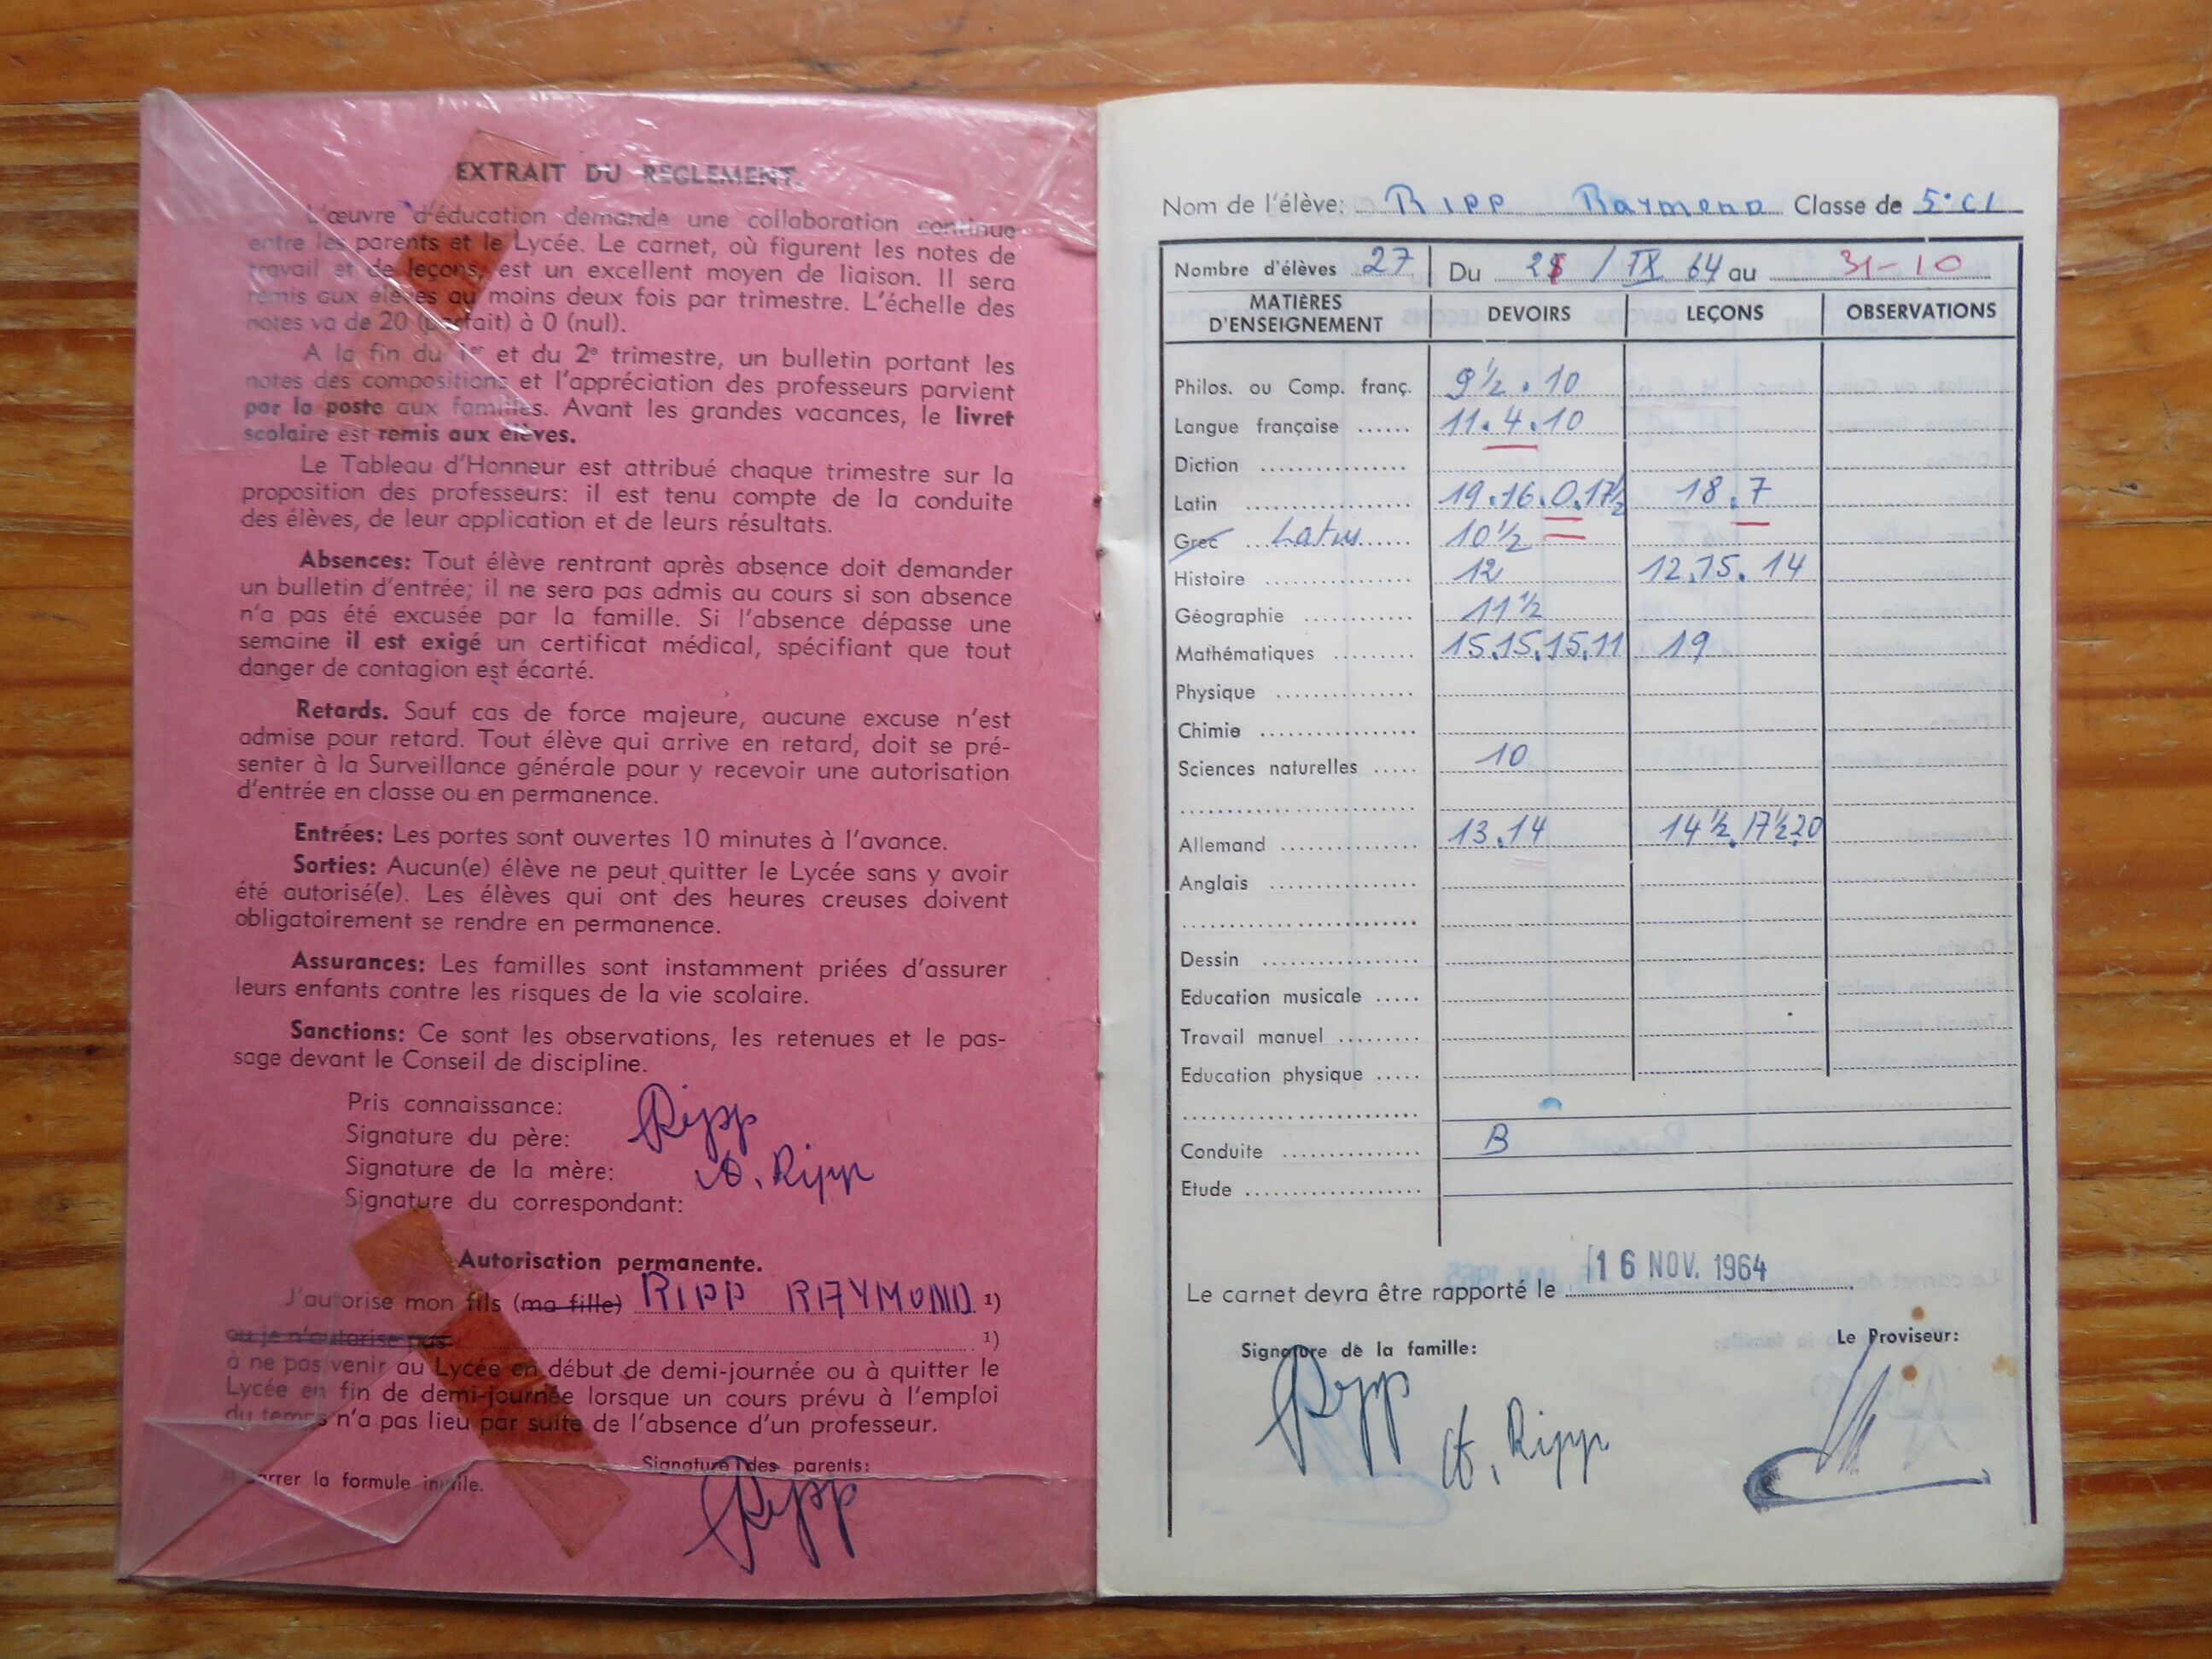 EXTRAIT DU REGLEMENT.
L'œuvre d'éducation demande une collaboration continue
entre les parents et le Lycée. Le carnet, où figurent les notes de
travail et de leçons, est un excellent moyen de liaison. Il sera
remis aux élèves au moins deux fois par trimestre. L'échelle des
notes va de 20 (parfait) à 0 (nul).
A la fin du 1er et du 2e trimestre, un bulletin portant les
notes des compositions et l'appréciation des professeurs parvient
par la poste aux familles. Avant les grandes vacances, le livret
scolaire est remis aux élèves.
Le Tableau d'Honneur est attribué chaque trimestre sur la
proposition des professeurs: il est tenu compte de la conduite
des élèves, de leur application et de leurs résultats.
Absences: Tout élève rentrant après absence doit demander
un bulletin d'entrée; il ne sera pas admis au cours si son absence
n'a pas été excusée par la famille. Si l'absence dépasse une
semaine il est exigé un certificat médical, spécifiant que tout
danger de contagion est écarté.
Retards. Sauf cas de force majeure, aucune excuse n'est
admise pour retard. Tout élève qui arrive en retard, doit se pré-
senter à la Surveillance générale pour y recevoir une autorisation
d'entrée en classe ou en permanence.
Entrées: Les portes sont ouvertes 10 minutes à l'avance.
Sorties: Aucun(e) élève ne peut quitter le Lycée sans y avoir
été autorisé(e). Les élèves qui ont des heures creuses doivent
obligatoirement se rendre en permanence.
Assurances: Les familles sont instamment priées d'assurer
leurs enfants contre les risques de la vie scolaire.
Sanctions: Ce sont les observations, les retenues et le pas-
sage devant le Conseil de discipline.
Pris connaissance:
Signature du père: Ripp
Signature de la mère: Ripp
Signature du correspondant:
Autorisation permanente.
J'autorise mon fils (ma fille) RIPP RAYMOND 1)
ou je n'autorise pas 1)
à ne pas venir au Lycée en début de demi-journée ou à quitter le
Lycée en fin de demi-journée lorsque un cours prévu à l'emploi
du temps n'a pas lieu par suite de l'absence d'un professeur.
Signature des parents:
Barrer la formule inutile.
Ripp
Nom de l'élève: RIPP RAYMOND Classe de 5e C1
Nombre d'élèves 27 Du / IX 64 au 31-10
MATIÈRES D'ENSEIGNEMENT DEVOIRS LEÇONS OBSERVATIONS
Philos. ou Comp. franç. 9½ . 10
Langue française ...... 11 . 4 . 10
Diction
Latin 19 . 16 . 0 . 17½ 18 . 7
Grec Latin 10½
Histoire 12 12 . 15 . 14
Géographie 11½
Mathématiques 15 . 15 . 15 . 11 19
Physique
Chimie
Sciences naturelles 10
Allemand 13 . 14 14½ . 17½ . 20
Anglais
Dessin
Education musicale
Travail manuel
Education physique
Conduite B
Etude
Le carnet devra être rapporté le 16 NOV. 1964
Signature de la famille: Le Proviseur:
Ripp Ripp